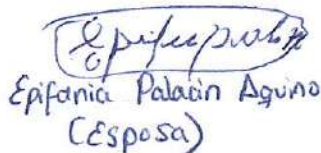 Epifania Palacin Aquino
(Esposa)